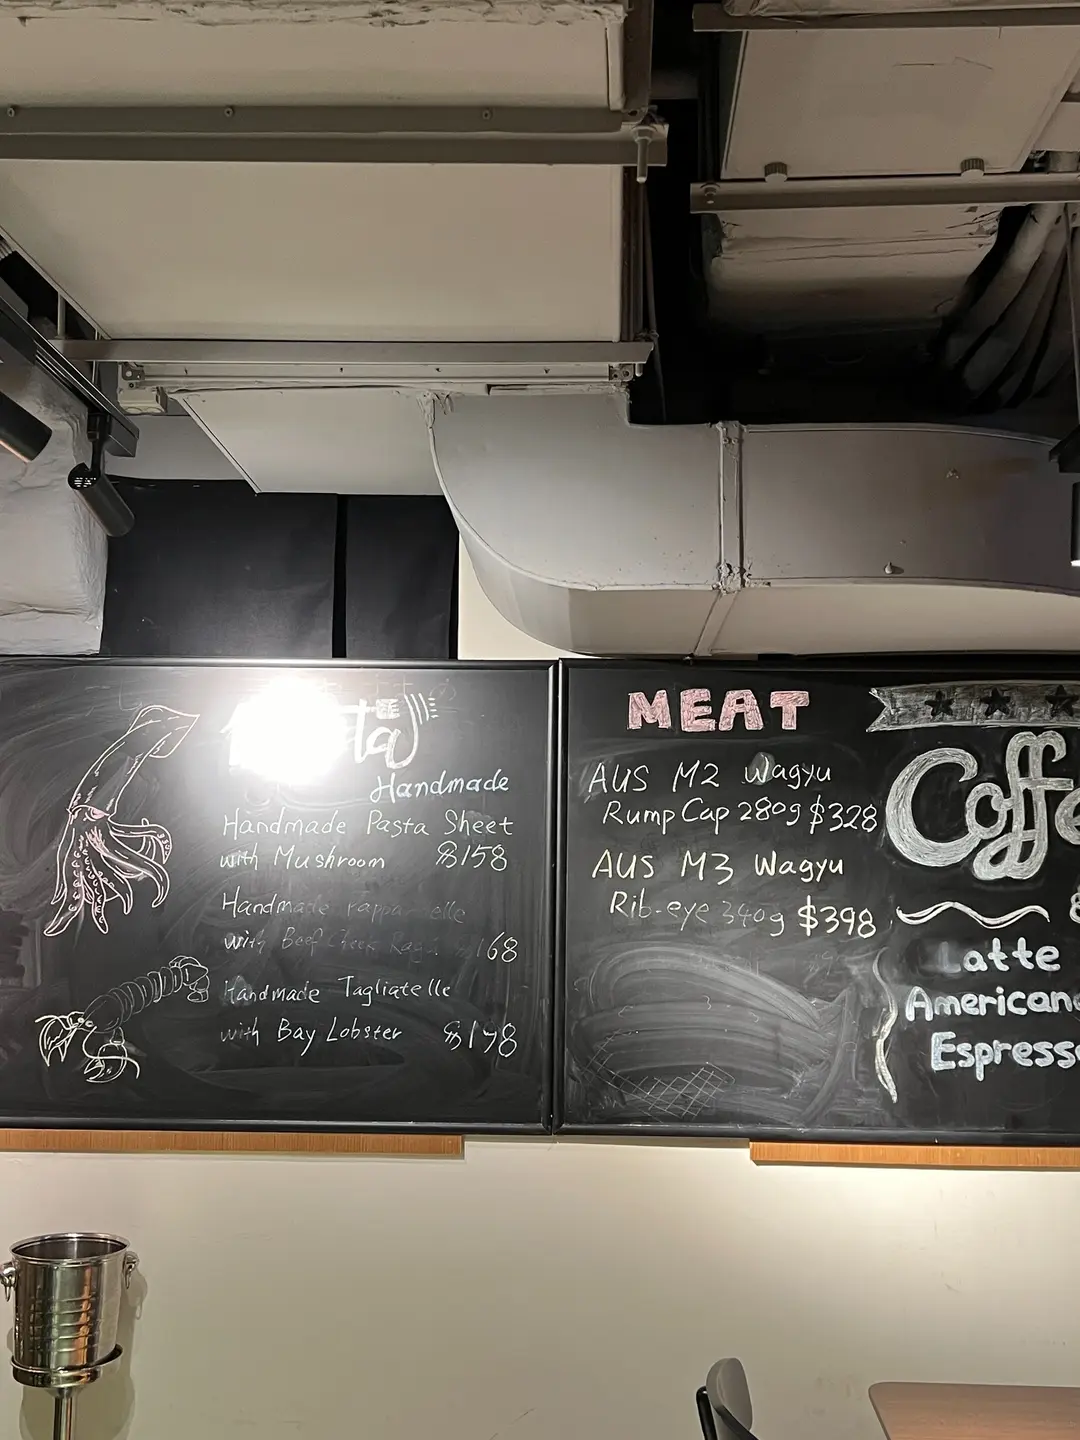 Handmade
Handmade Pasta Sheet
with Mushroom $158
Handmade Pappardelle
with Beef Cheek Ragu $168
Handmade Tagliatelle
with Bay Lobster $198
MEAT
AUS M2 Wagyu
Rump Cap 280g $328
AUS M3 Wagyu
Rib-eye 340g $398
Coffe
Latte
American
Espress